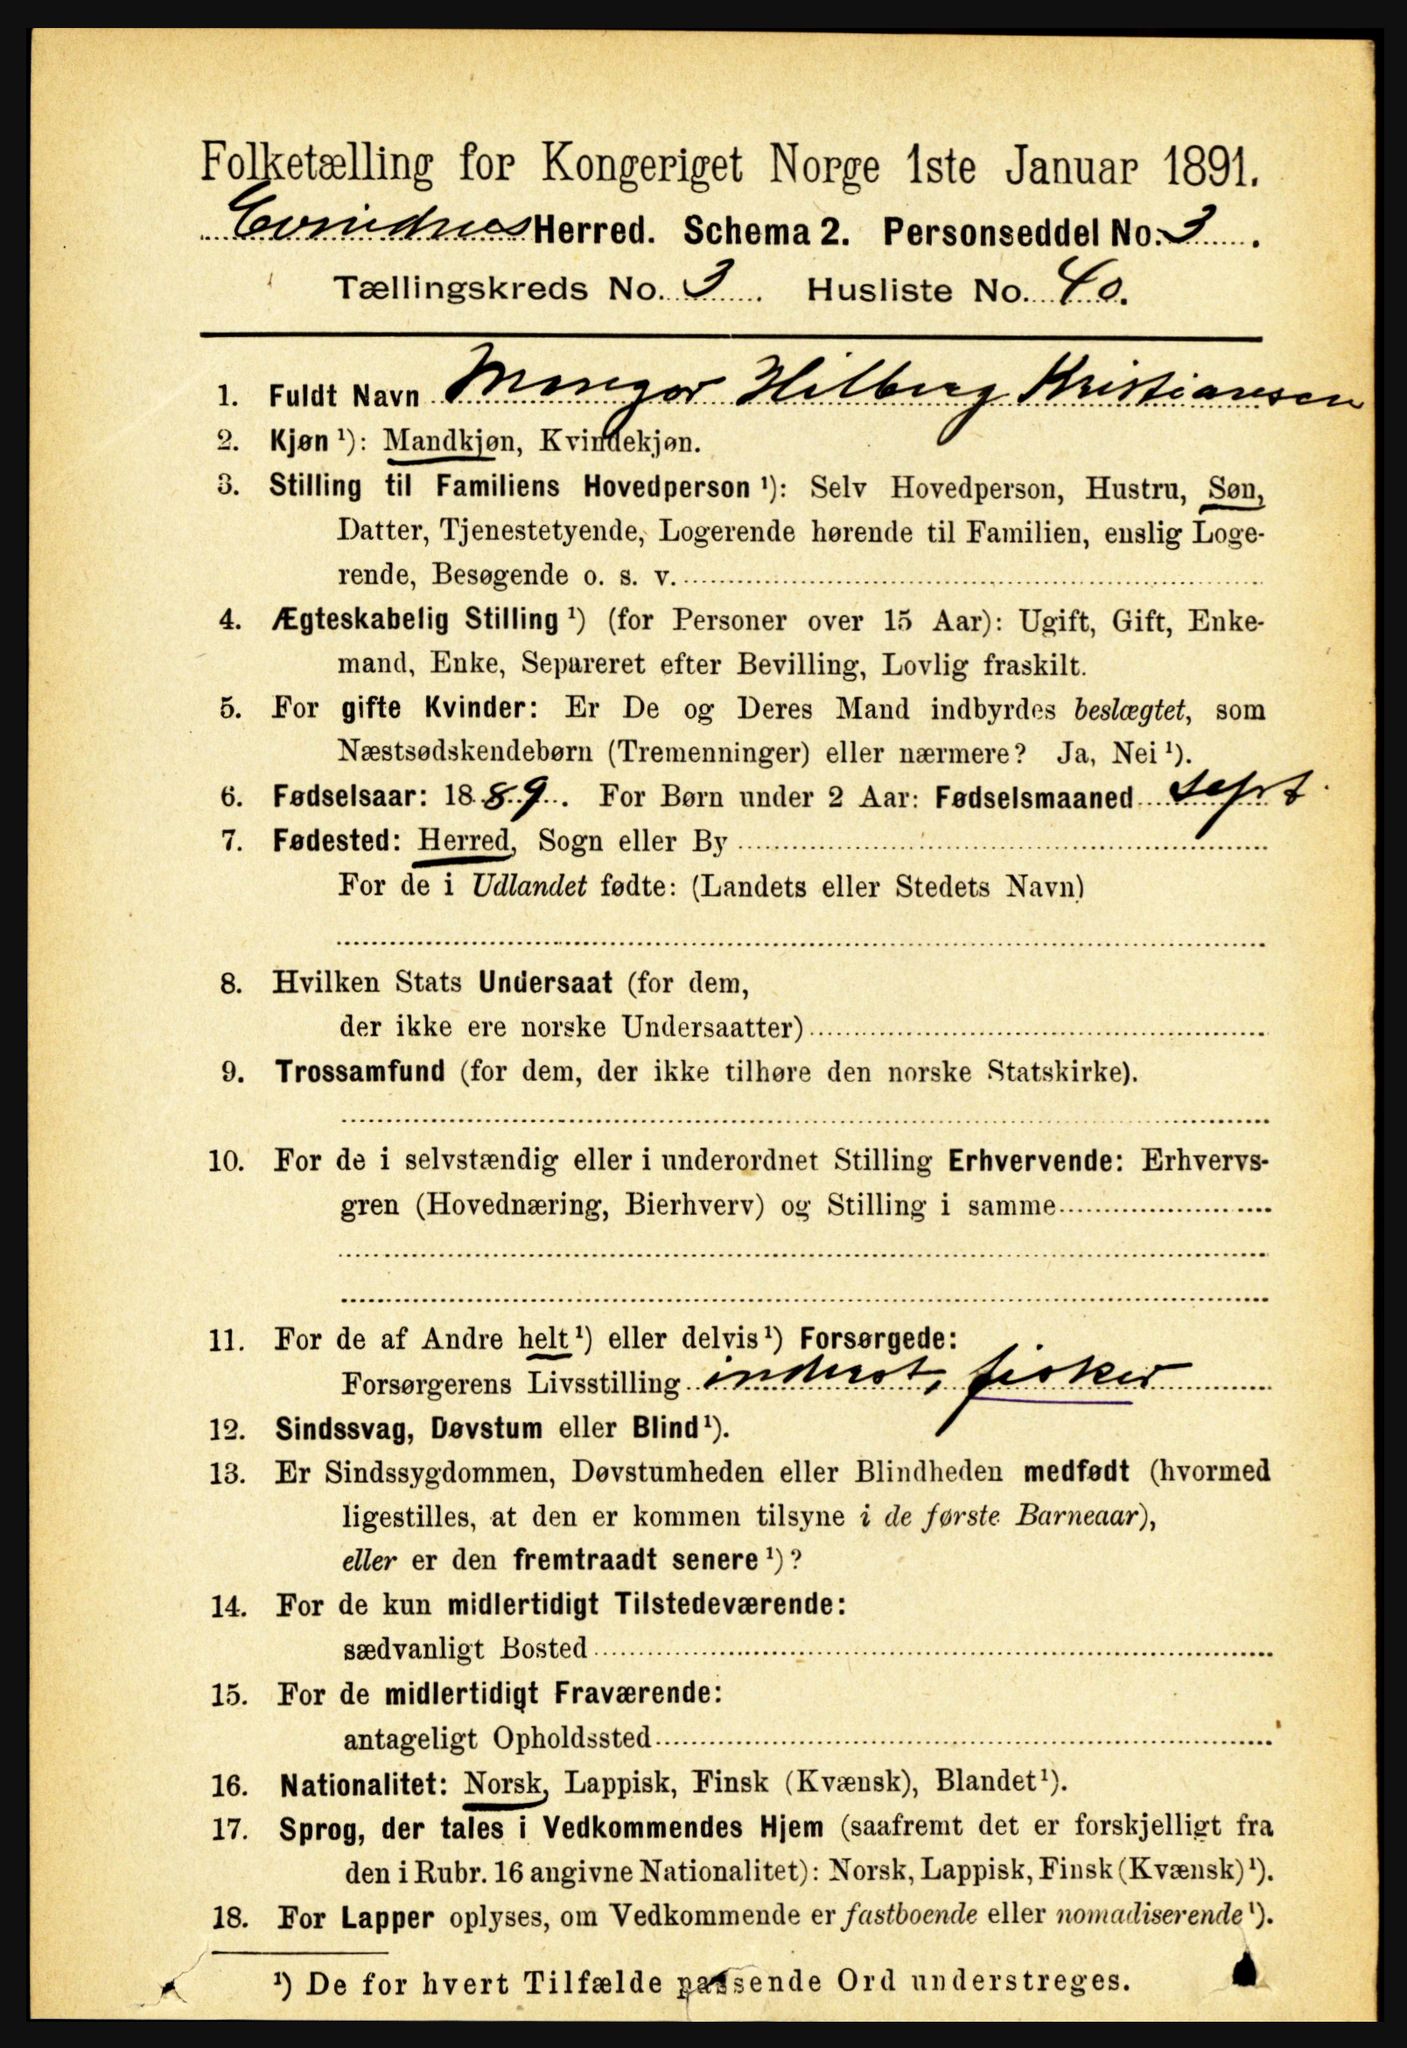 Folketælling for Kongeriget Norge 1ste Januar 1891.
Evindnes Herred. Schema 2. Personseddel No. 3.
Tællingskreds No. 3. Husliste No. 40.
1. Fuldt Navn Hilberg Kristiansen
2. Kjøn ¹): Mandkjøn, Kvindekjøn.
3. Stilling til Familiens Hovedperson ¹): Selv Hovedperson, Hustru, Søn,
Datter, Tjenestetyende, Logerende hørende til Familien, enslig Loge-
rende, Besøgende o. s. v.
4. Ægteskabelig Stilling ¹) (for Personer over 15 Aar): Ugift, Gift, Enke-
mand, Enke, Separeret efter Bevilling, Lovlig fraskilt.
5. For gifte Kvinder: Er De og Deres Mand indbyrdes beslægtet, som
Næstsødskendebørn (Tremenninger) eller nærmere? Ja, Nei ¹).
6. Fødselsaar: 1889. For Børn under 2 Aar: Fødselsmaaned Sept
7. Fødested: Herred, Sogn eller By
For de i Udlandet fødte: (Landets eller Stedets Navn)
8. Hvilken Stats Undersaat (for dem,
der ikke ere norske Undersaatter)
9. Trossamfund (for dem, der ikke tilhøre den norske Statskirke).
10. For de i selvstændig eller i underordnet Stilling Erhvervende: Erhvervs-
gren (Hovednæring, Bierhverv) og Stilling i samme
11. For de af Andre helt ¹) eller delvis ¹) Forsørgede:
Forsørgerens Livsstilling inderst, fisker
12. Sindssvag, Døvstum eller Blind ¹).
13. Er Sindssygdommen, Døvstumheden eller Blindheden medfødt (hvormed
ligestilles, at den er kommen tilsyne i de første Barneaar),
eller er den fremtraadt senere ¹)?
14. For de kun midlertidigt Tilstedeværende:
sædvanligt Bosted
15. For de midlertidigt Fraværende:
antageligt Opholdssted
16. Nationalitet: Norsk, Lappisk, Finsk (Kvænsk), Blandet ¹).
17. Sprog, der tales i Vedkommendes Hjem (saafremt det er forskjelligt fra
den i Rubr. 16 angivne Nationalitet): Norsk, Lappisk, Finsk (Kvænsk) ¹).
18. For Lapper oplyses, om Vedkommende er fastboende eller nomadiserende ¹).
¹) De for hvert Tilfælde passende Ord understreges.